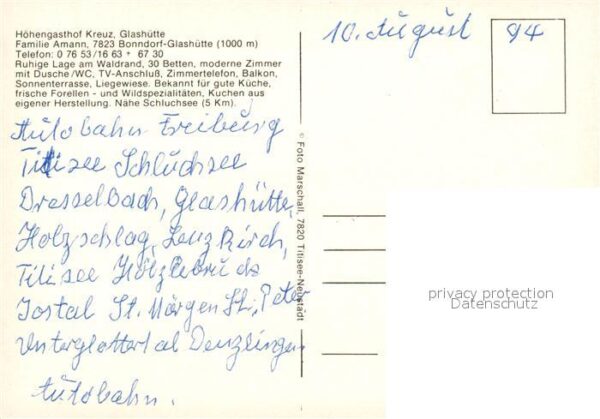 Höhengasthof Kreuz, Glashütte
Familie Amann, 7823 Bonndorf-Glashütte (1000 m)
Telefon: 0 76 53/16 63 + 67 30
Ruhige Lage am Waldrand, 30 Betten, moderne Zimmer
mit Dusche/WC, TV-Anschluß, Zimmertelefon, Balkon,
Sonnenterrasse, Liegewiese. Bekannt für gute Küche,
frische Forellen - und Wildspezialitäten, Kuchen aus
eigener Herstellung. Nähe Schluchsee (5 Km).
10. August 94
Autobahn Freiburg
Titisee Schluchsee
Dresselbach, Glashütte,
Holzschlag, Lenzkirch,
Titisee Hölzlebruck
Jostal St. Märgen St. Peter
Unterglottertal Denzlingen
Autobahn.
© Foto Marschall, 7820 Titisee-Neustadt
privacy protection
Datenschutz